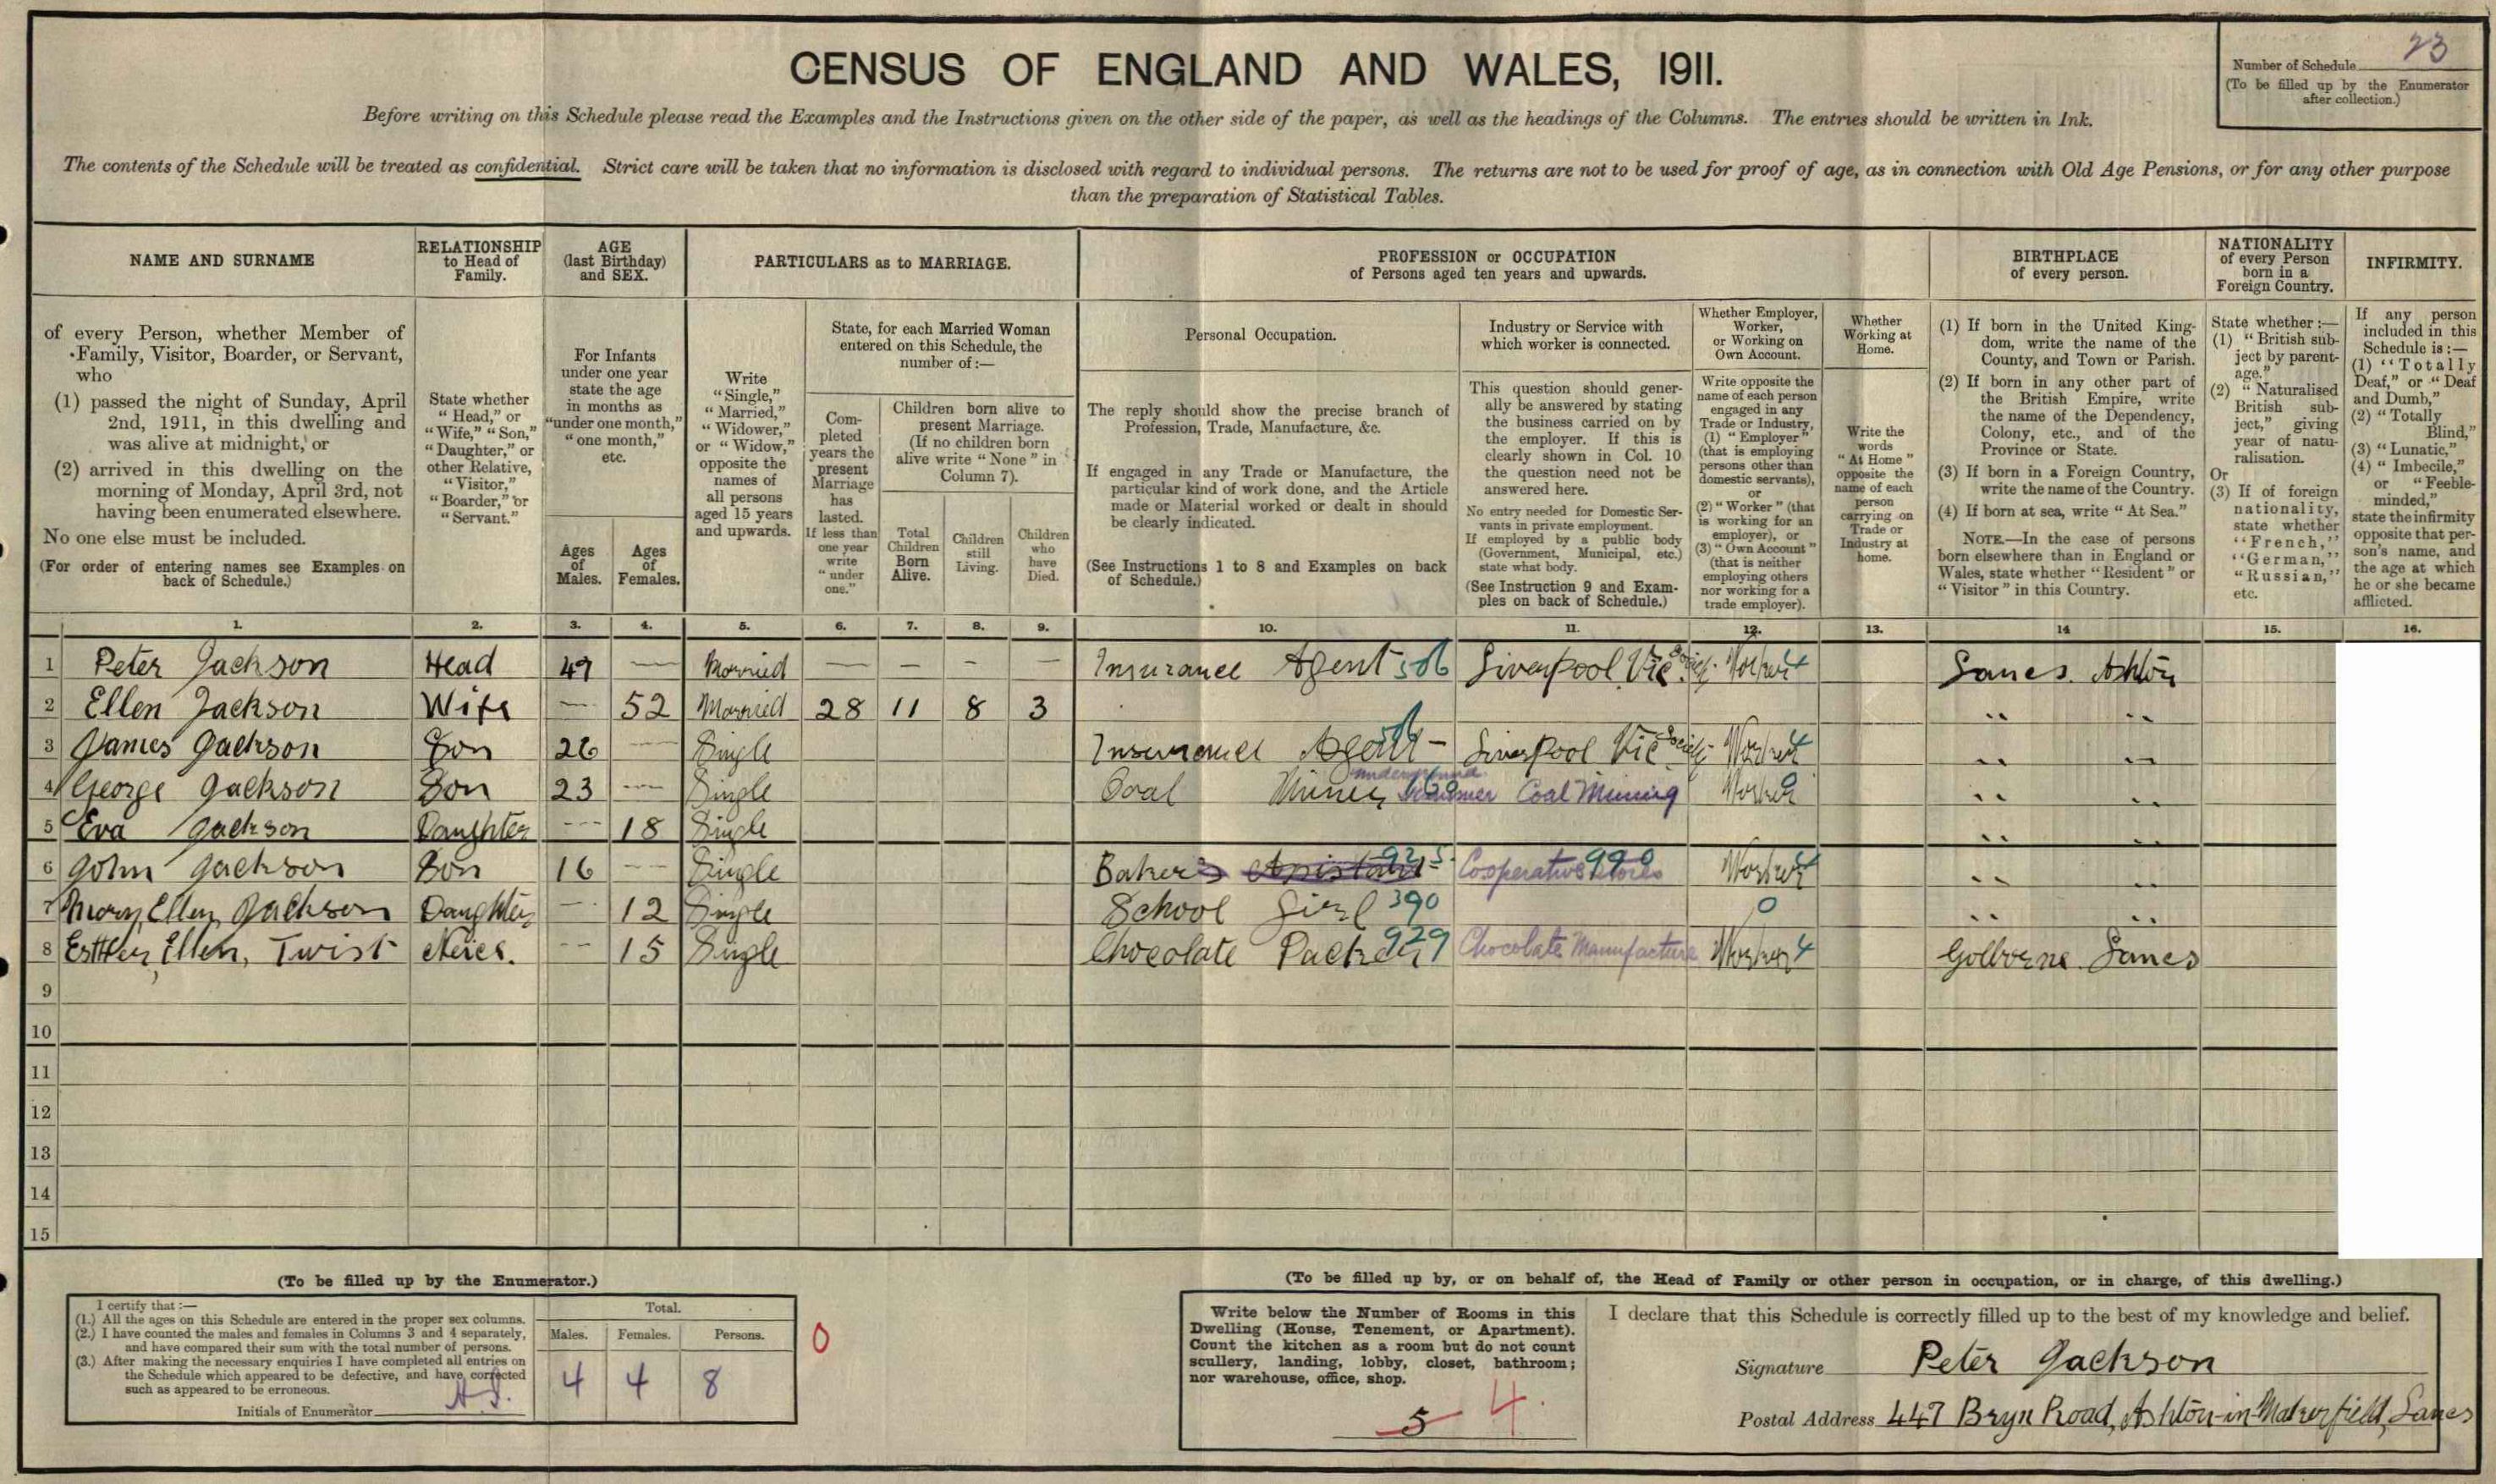 CENSUS OF ENGLAND AND WALES, 1911.
Number of Schedule 23
(To be filled up by the Enumerator
after collection.)
Before writing on this Schedule please read the Examples and the Instructions given on the other side of the paper, as well as the headings of the Columns. The entries should be written in Ink.
The contents of the Schedule will be treated as confidential. Strict care will be taken that no information is disclosed with regard to individual persons. The returns are not to be used for proof of age, as in connection with Old Age Pensions, or for any other purpose
than the preparation of Statistical Tables.
NAME AND SURNAME
of every Person, whether Member of
Family, Visitor, Boarder, or Servant,
who
(1) passed the night of Sunday, April
2nd, 1911, in this dwelling and
was alive at midnight, or
(2) arrived in this dwelling on the
morning of Monday, April 3rd, not
having been enumerated elsewhere.
No one else must be included.
(For order of entering names see Examples on
back of Schedule.)
RELATIONSHIP
to Head of
Family.
State whether
"Head," or
"Wife," "Son,"
"Daughter," or
other Relative,
"Visitor,"
"Boarder," or
"Servant."
AGE
(last Birthday)
and SEX.
For Infants
under one year
state the age
in months as
"under one month,"
"one month,"
etc.
Ages
of
Males.
Ages
of
Females.
PARTICULARS as to MARRIAGE.
Write
"Single,"
"Married,"
"Widower,"
or "Widow,"
opposite the
names of
all persons
aged 15 years
and upwards.
State, for each Married Woman
entered on this Schedule, the
number of:—
Com-
pleted
years the
present
Marriage
has
lasted.
If less than
one year
write
"under
one."
Children born alive to
present Marriage.
(If no children born
alive write "None" in
Column 7).
Total
Children
Born
Alive.
Children
still
Living.
Children
who
have
Died.
PROFESSION or OCCUPATION
of Persons aged ten years and upwards.
Personal Occupation.
The reply should show the precise branch of
Profession, Trade, Manufacture, &c.
If engaged in any Trade or Manufacture, the
particular kind of work done, and the Article
made or Material worked or dealt in should
be clearly indicated.
(See Instructions 1 to 8 and Examples on back
of Schedule.)
Industry or Service with
which worker is connected.
This question should gener-
ally be answered by stating
the business carried on by
the employer. If this is
clearly shown in Col. 10
the question need not be
answered here.
No entry needed for Domestic Ser-
vants in private employment.
If employed by a public body
(Government, Municipal, etc.)
state what body.
(See Instruction 9 and Exam-
ples on back of Schedule.)
Whether Employer,
Worker,
or Working on
Own Account.
Write opposite the
name of each person
engaged in any
Trade or Industry,
(1) "Employer"
(that is employing
persons other than
domestic servants),
or
(2) "Worker" (that
is working for an
employer), or
(3) "Own Account"
(that is neither
employing others
nor working for a
trade employer).
Whether
Working at
Home.
Write the
words
"At Home"
opposite the
name of each
person
carrying on
Trade or
Industry at
home.
BIRTHPLACE
of every person.
(1) If born in the United King-
dom, write the name of the
County, and Town or Parish.
(2) If born in any other part of
the British Empire, write
the name of the Dependency,
Colony, etc., and of the
Province or State.
(3) If born in a Foreign Country,
write the name of the Country.
(4) If born at sea, write "At Sea."
NOTE.—In the case of persons
born elsewhere than in England or
Wales, state whether "Resident" or
"Visitor" in this Country.
NATIONALITY
of every Person
born in a
Foreign Country.
State whether:—
(1) "British sub-
ject by parent-
age."
(2) "Naturalised
British sub-
ject," giving
year of natu-
ralisation.
Or
(3) If of foreign
nationality,
state whether
"French,"
"German,"
"Russian,"
etc.
INFIRMITY.
If any person
included in this
Schedule is:—
(1) "Totally
Deaf," or "Deaf
and Dumb,"
(2) "Totally
Blind,"
(3) "Lunatic,"
(4) "Imbecile,"
or "Feeble-
minded,"
state the infirmity
opposite that per-
son's name, and
the age at which
he or she became
afflicted.
1. 2. 3. 4. 5. 6. 7. 8. 9. 10. 11. 12. 13. 14 15. 16.
1 Peter Jackson Head 49 — Married — — – — Insurance Agent 506 Liverpool Vic Society Worker 4 Lancs. Ashton
2 Ellen Jackson Wife — 52 Married 28 11 8 3 " "
3 James Jackson Son 26 — Single Insurance Agent – Liverpool Vic Society Worker 4 " "
4 George Jackson Son 23 — Single Coal Miner underground Coal Mining Worker " "
5 Eva Jackson Daughter — 18 Single " "
6 John Jackson Son 16 — Single Baker's Assistant 925 Cooperative Stores 990 Worker 4 " "
7 Mary Ellen Jackson Daughter — 12 Single School Girl 390 0 " "
8 Esther Ellen, Twist Neice. — 15 Single Chocolate Packer 929 Chocolate Manufacture Worker 4 Golborne Lancs
9
10
11
12
13
14
15
(To be filled up by the Enumerator.)
I certify that:—
(1.) All the ages on this Schedule are entered in the proper sex columns.
(2.) I have counted the males and females in Columns 3 and 4 separately,
and have compared their sum with the total number of persons.
(3.) After making the necessary enquiries I have completed all entries on
the Schedule which appeared to be defective, and have corrected
such as appeared to be erroneous.
Initials of Enumerator
Total.
Males. Females. Persons.
4 4 8
0
(To be filled up by, or on behalf of, the Head of Family or other person in occupation, or in charge, of this dwelling.)
Write below the Number of Rooms in this
Dwelling (House, Tenement, or Apartment).
Count the kitchen as a room but do not count
scullery, landing, lobby, closet, bathroom;
nor warehouse, office, shop.
5 4.
I declare that this Schedule is correctly filled up to the best of my knowledge and belief.
Signature Peter Jackson
Postal Address 447 Bryn Road, Ashton-in-Makerfield, Lancs